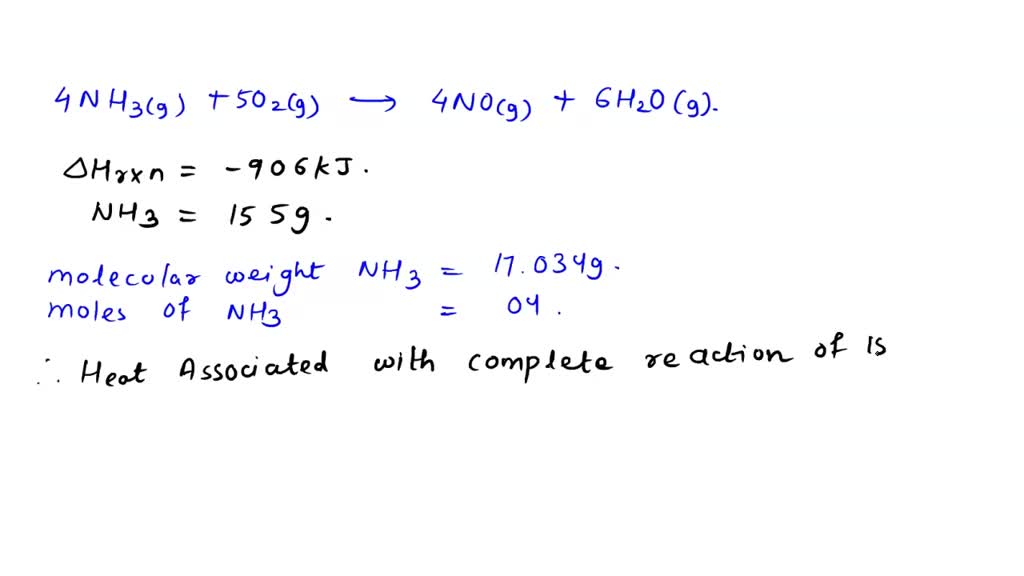 4NH3(g) + 5O2(g) → 4NO(g) + 6H2O(g).
ΔHrxn = -906kJ.
NH3 = 155g.
molecular weight NH3 = 17.034g.
moles of NH3 = 04.
∴ Heat Associated with complete reaction of 15